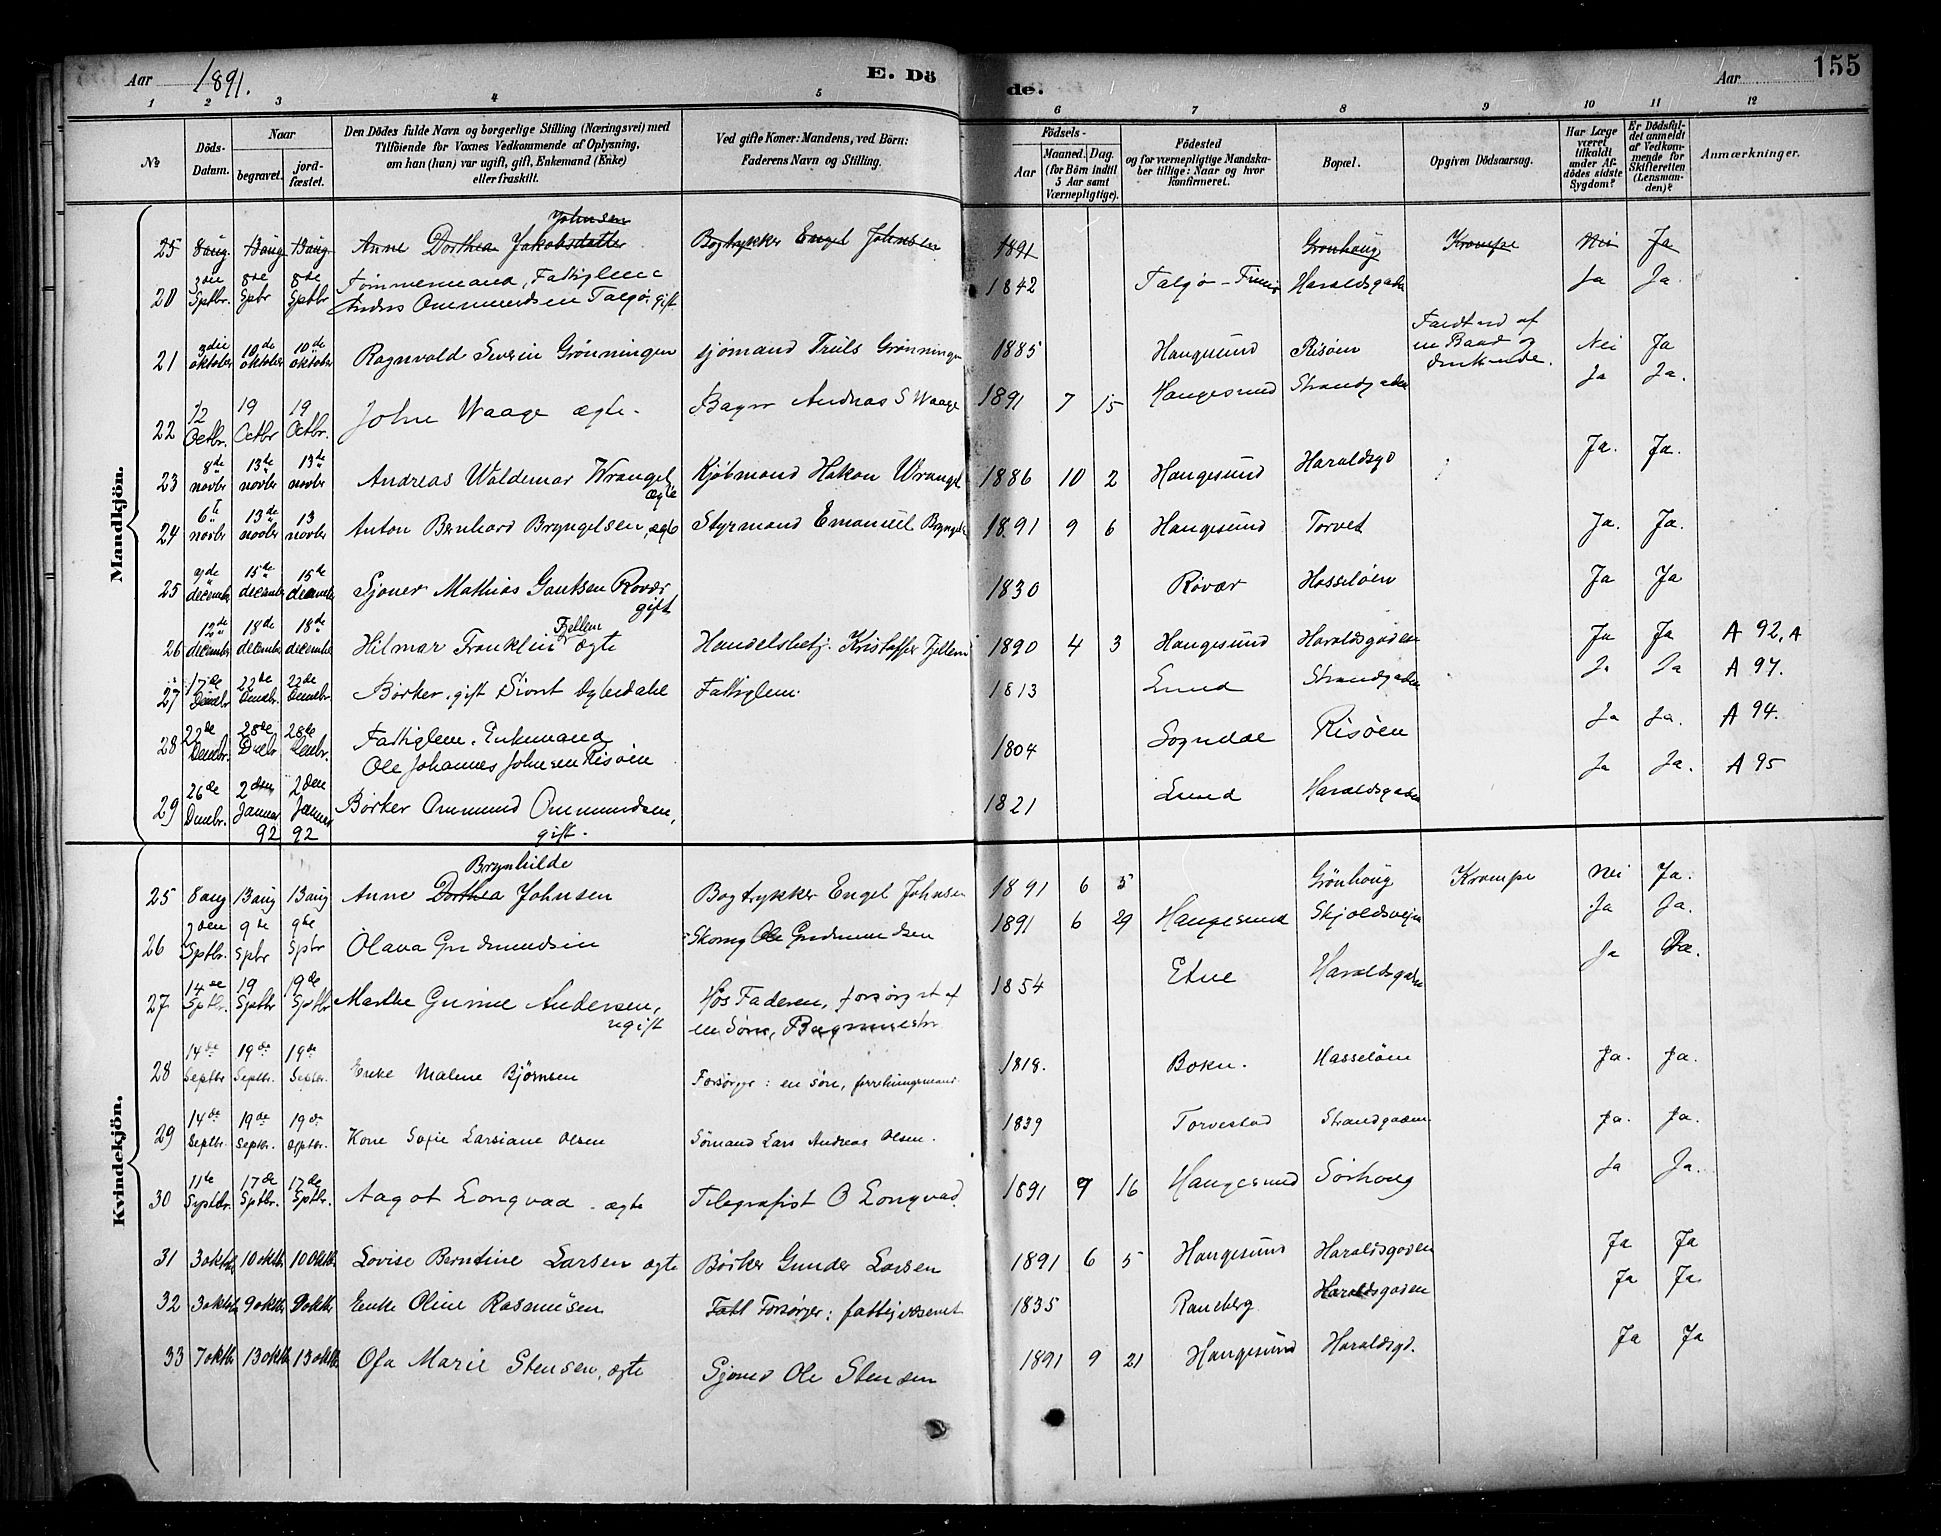 Aar 1891. E. Döde. Aar 155
1 2 3 4 5 6 7 8 9 10 11 12
№ Döds-Datum. Naar begravet. jordfæstet. Den Dödes fulde Navn og borgerlige Stilling (Næringsvei) med Tilföiende for Voxnes Vedkommende af Oplysning, om han (hun) var ugift, gift, Enkemand (Enke) eller fraskilt. Ved gifte Koner: Mandens, ved Börn: Faderens Navn og Stilling. Födsels- Aar Maaned. Dag. (for Börn indtil 5 Aar samt Værnepligtige). Födested og for værnepligtige Mandskaber tillige: Naar og hvor konfirmeret. Bopæl. Opgiven Dödsaarsag. Har Læge været tilkaldt under Afdödes sidste Sygdom? Er Dödsfaldet anmeldt af Vedkommende for Skifteretten (Lensmanden)? Anmærkninger.
Mandkjön.
Johnsen
25 8 aug. 13 aug 13 aug. Anne Dorthea Jakobsdatter Bogtrykker Engel Johnsen 1891 Grønhaug Krampe Nei Ja
20 3die Sptbr. 8de Spbr 8de Sptbr Tømmermand, Fattiglem Ommundsen Talgø, gift 1842 Talgø - Haraldsgaden Ja Ja.
21 oktober 10de oktober 10de oktober Ragnvald Severin Grønningen sjømand Truls Grønningen 1885 Haugesund Risøen Faldt ud af en Baad og druknede. Nei Ja
22 12 Octbr. 19 Octbr 19 Octbr. John Waage ægte. Andreas S Waage 1891 7 15 Haugesund Strandgaden Ja Ja.
23 8de novbr 13de novbr 13de novbr Andreas Waldemar Wrangel ægte Kjøbmand Hakon Wrangel 1886 10 2 Haugesund Haraldsgd Ja. Ja.
24 6t novbr 13de novbr 13 novbr Anton Bernhard Bryngelsen, ægte Styrmand Emanuel 1891 9 6 Haugesund Torvet Ja. Ja.
25 december 15de december 15de december Mathias Gautsen Rovær gift 1830 Røvær Hasseløen Ja Ja
26 12te december 18de december 18de december Hilmar Franklin Fjellem ægte Handelsbetj. Kristoffer 1890 4 3 Haugesund Haraldsgaden Ja Ja A 92, A
27 17de 22de 22de Børker, gift Sivert Fattiglem. 1813 Lund Strandgaden Ja Ja A 97.
28 28de 28de Fattiglem. Enkemand Ole Johannes Johnsen Risøen 1804 Sogndal Risøen Ja Ja. A 94.
29 26de 2den Januar 92 2den Januar 92 Børker Ommund Ommundsen, gift. 1821 Lund Haraldsgaden Ja Ja. A 95
Kvindekjön.
Brynhilde
25 8 aug 13 aug 13 aug Anne Dorthea Johnsen Bogtrykker Engel Johnsen 1891 6 5 Grönhoug Krampe Nei Ja.
26 Sptbr. 9de Spbr 9de Spbr Olava Gudmundsen Ole Gudmundsen 1891 6 29 Haugesund Skjoldsvejen Ja Ja.
27 14de Sptbr. 19 Sptbr 19de Sptbr Marthe Gurine Andersen, ugift Hos Faderen, forsørget af en Søn, 1854 Etne Haraldsgaden Ja
28 14de Septbr 19de Septbr. 19de Septbr. Enke Malene Bjørnsen Forsørger: en søn, forretningsmand 1818. Bokn. Hasseløen Ja. Ja.
29 14de Septbr. 19de Septbr. 19de Septbr. Kone Sofie Larsiane Olsen Sømand Lars Andreas Olsen. 1839 Torvestad Strandgaden Ja. Ja.
30 11te Septbr. 17de Sptbr. 17de Sptbr. Aagot Longvad. ægte Telegrafist O Longvad. 1891 16 Haugesund Sørhoug Ja Ja.
31 3 oktbr 10 oktbr. 10 oktbr. Lovise Berntine Larsen ægte Børker Gunder Larsen 1891 6 5 Haugesund Haraldsgaden Ja Ja
32 3 oktbr 9 oktbr. 9 oktbr. Enke Oline Rasmusen Fatt Forsørger: fattigvæsenet 1835 Raneberg Haraldsgaden Ja Ja
33 7 oktbr 13 oktbr 13 oktbr. Ofa Marie Stensen, ægte Ole Stensen 1891 9 21 Haugesund Haraldsgd. Ja Ja